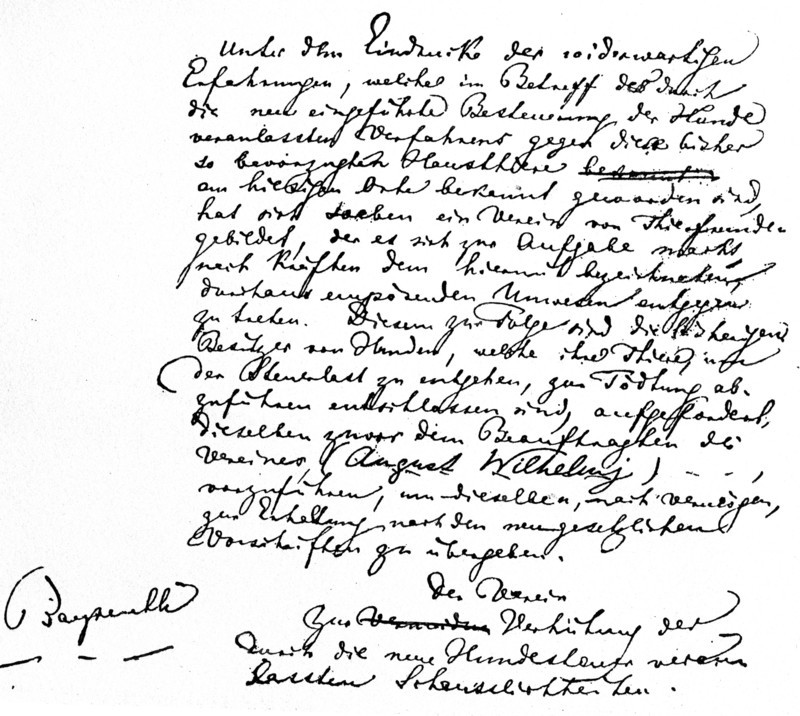 Unter dem Eindrucke der widerwärtigen
Erfahrungen, welche im Betreff des durch
die neu eingeführte Besteuerung der Hunde
veranlassten Verfahrens gegen diese bisher
so bevorzugten Hausthiere
am hiesigen Orte bekannt geworden sind,
hat sich soeben ein Verein von Thierfreunden
gebildet, der es sich zur Aufgabe macht,
nach Kräften dem hiermit bezeichneten,
durchaus empörenden Unwesen entgegen
zu treten. Diesem zur Folge sind die bisherigen
Besitzer von Hunden, welche ihre Thiere, um
der Steuerlast zu entgehen, zur Tödtung ab-
zuführen entschlossen sind, aufgefordert,
dieselben zuvor dem Beauftragten des
Vereines, (August Wilhelmj) – – ,
vorzuführen, um dieselben, nach Vermögen,
zur Erhaltung nach den neugesetzlichen
Vorschriften zu übergeben.
Der Verein
zur Verhütung der
durch die neue Hundesteuer veran
lassten Scheusslichkeiten.
Bayreuth